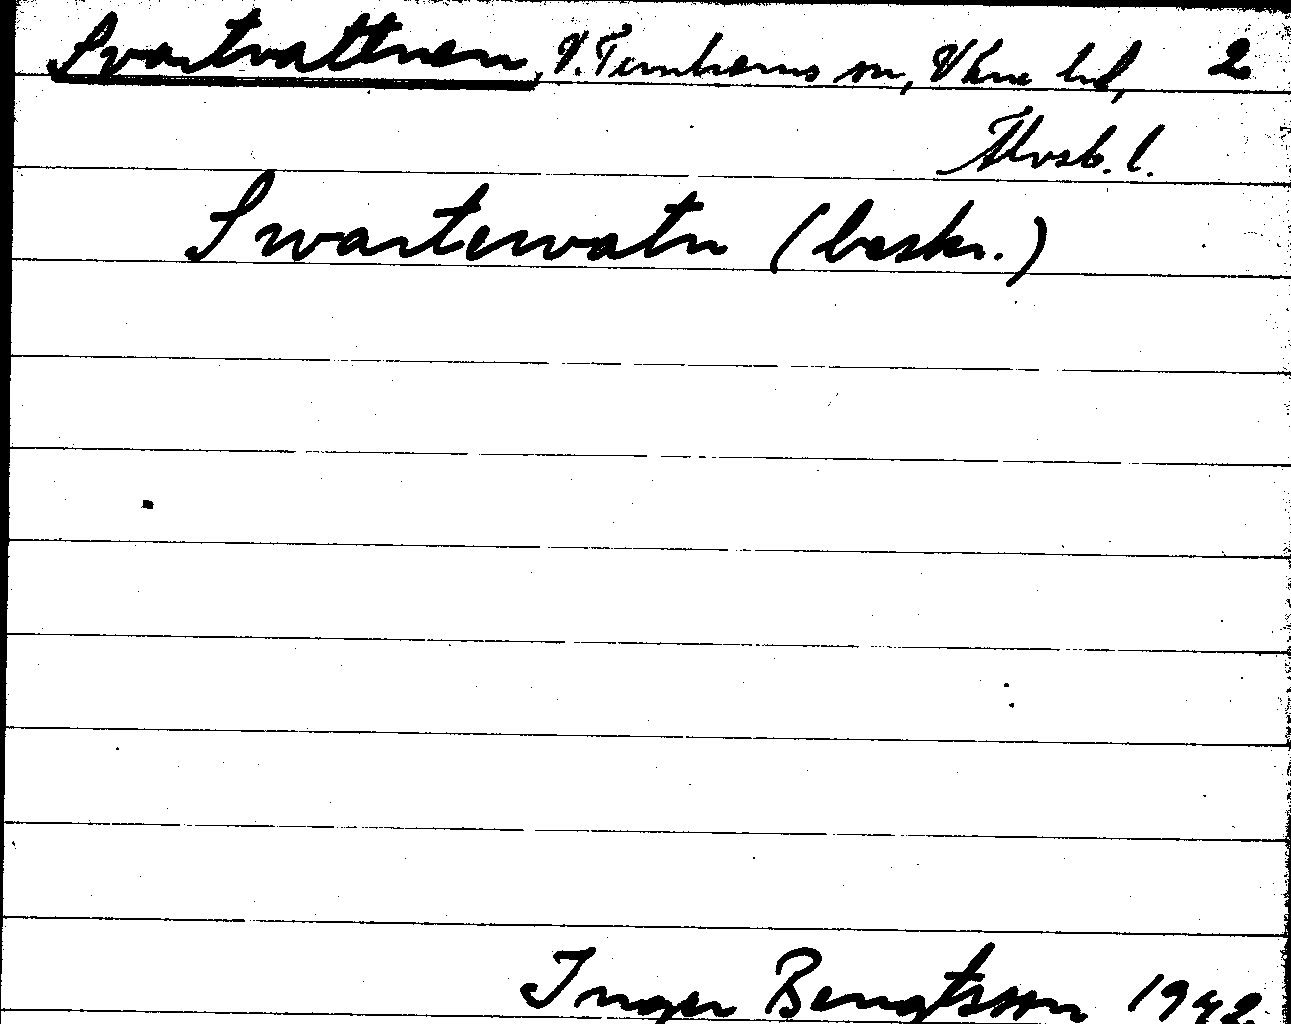 Svartvattnen, V. Tunhems sn, Väne hd, 2
Älvsb. l.
Swartewatn (beskr.)
Inger Bengtsson 1942